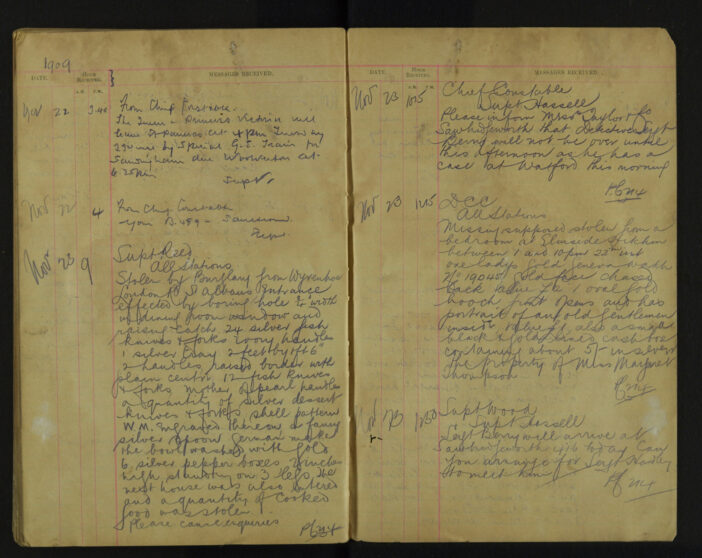 1909
DATE. HOUR RECEIVED. MESSAGES RECEIVED.
A.M. P.M.
Nov 22 3.40 From Chief Constable.
The Queen - Princess Victoria will
leave St Pancras at 4 pm Tuesday
23rd inst by Special G.E. Train for
Sandringham due Wolverton at
6.25pm
Supt.
Nov 22 4 From Chief Constable
- your B.489 - Sanctioned
Supt.
Nov 23 9 Supt Reed
All Stations
Stolen by Burglary from Wyvenhoe
London Rd St Albans Entrance
effected by boring hole &
of dining room window and
raising catch 24 silver fish
knives & forks Ivory handles
1 silver tray 2 feet by 1ft 6"
2 handles raised border with
plain centre 12 fish knives
& forks mother of pearl handles
a quantity of silver dessert
knives & forks shell pattern
W.M. engraved thereon a fancy
silver spoon German make
the bowl washed with gold
6 silver pepper boxes inches
high standing on 3 legs the
next house was also entered
and a quantity of cooked
food was stolen.
Please cause enquiries
DATE. HOUR RECEIVED. MESSAGES RECEIVED.
Nov 23 10.5 Chief Constable
Supt Hassell
Please inform Miss Taylor
Sawbridgeworth that Sergt
Berry will not be over until
this afternoon as he has a
case at Watford this morning
Nov 23 12.15 DCC
All Stations
Missing supposed stolen from a
bedroom at Elmside Hitchin
between 1 and 10 pm 22nd inst
one Lady's Gold Geneva watch
No 19045 Gold face Chased
back value 1 oval gold
brooch front opens and has
portrait of an old Gentleman
inside value £1, also a small
black & Gold cash box
containing about 5/- in silver
the property of Miss Margaret
Thompson
Nov 23 12.50 Supt Wood
Supt Hassell
Sergt Berry will arrive at
Sawbridgeworth at 6 today Can
you arrange for Sergt
to meet him